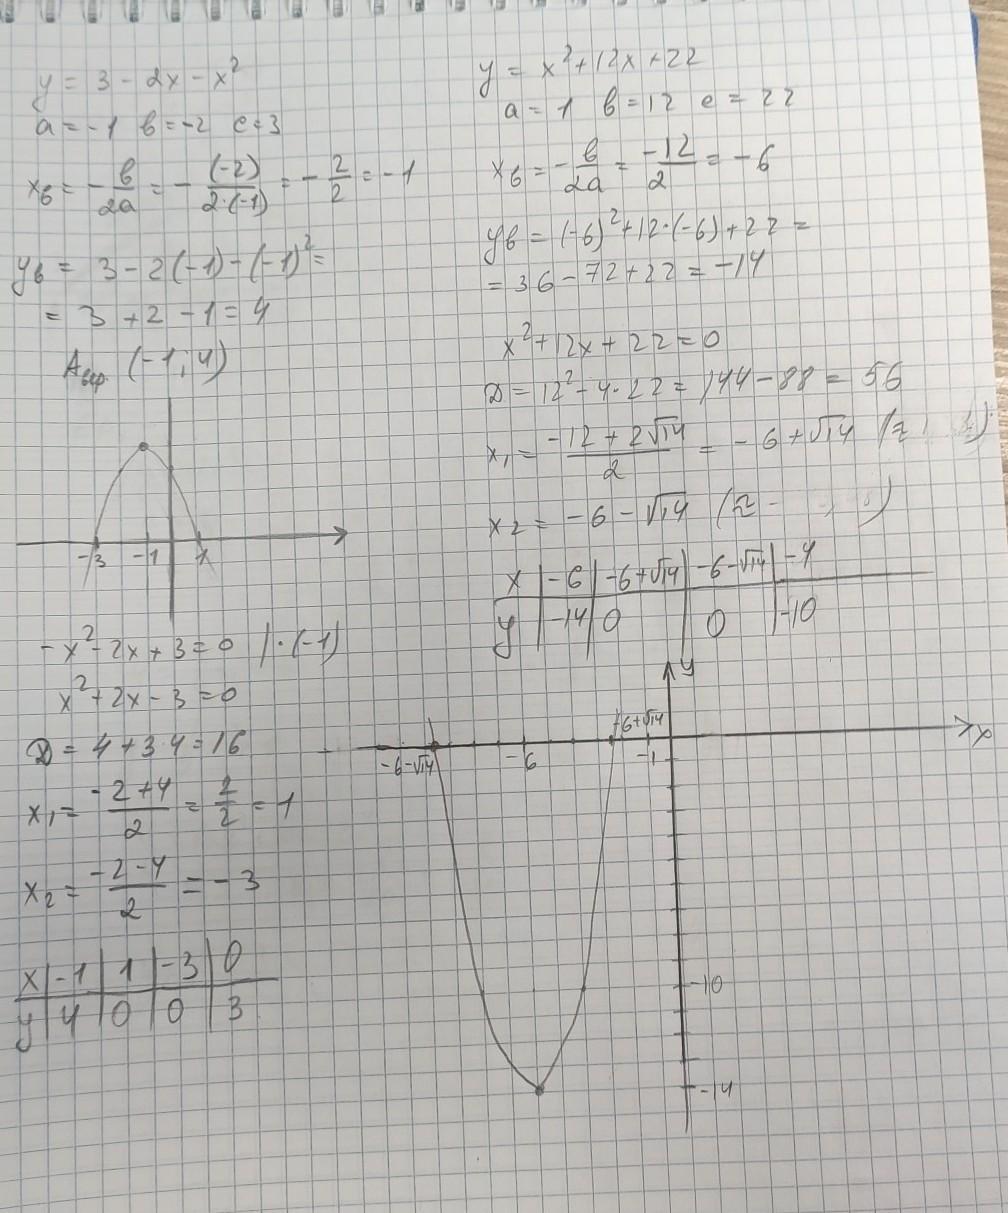 y = 3 - 2x - x²
a = -1 в = -2 c = 3
xв = -в/2a = -(-2)/2·(-1) = -2/2 = -1
yв = 3 - 2(-1) - (-1)² =
= 3 + 2 - 1 = 4
Aвер. (-1; 4)
-3 -1 1
-x² - 2x + 3 = 0 | · (-1)
x² + 2x - 3 = 0
D = 4 + 3·4 = 16
x₁ = -2+4/2 = 2/2 = 1
x₂ = -2-4/2 = -3
x | -1 | 1 | -3 | 0
y | 4 | 0 | 0 | 3
y = x² + 12x + 22
a = 1 в = 12 c = 22
xв = -в/2a = -12/2 = -6
yв = (-6)² + 12·(-6) + 22 =
= 36 - 72 + 22 = -14
x² + 12x + 22 = 0
D = 12² - 4·22 = 144 - 88 = 56
x₁ = -12 + 2√14/2 = -6 + √14
x₂ = -6 - √14
x | -6 | -6+√14 | -6-√14 | -4
y | -14 | 0 | 0 | -10
y
-6+√14
x
-6-√14 -6 -1
-10
-14